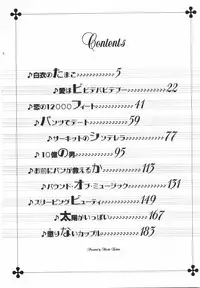 Contents
♪白衣のたまご 5
♪愛はビビデバビデブー 22
♪恋の12000フィート 41
♪パンツでデート 59
♪サーキットのシンデレラ 77
♪10億の男 95
♪お前にパンが救えるか 113
♪バウンド・オブ・ミュージック 131
♪スリーピングビューティ 149
♪太陽がいっぱい 167
♪重けないカップル 183